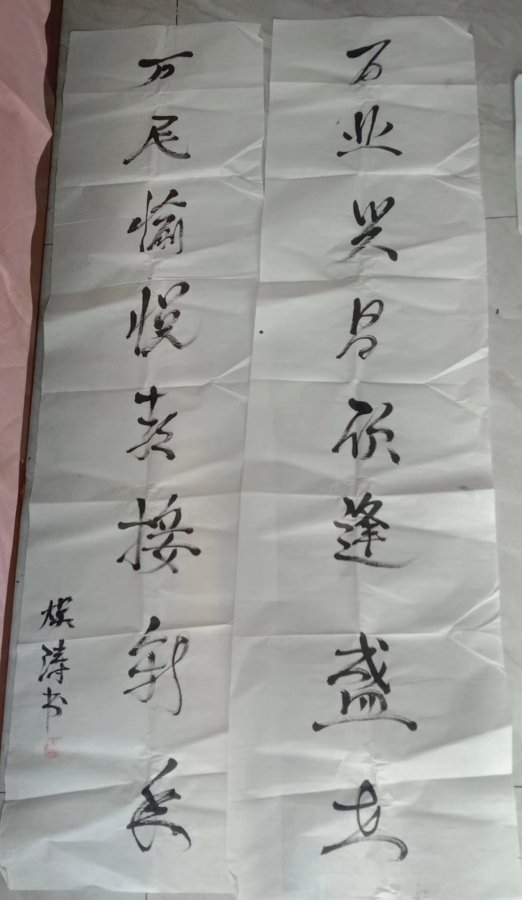 百业兴昌欣逢盛世
万民愉悦喜接新春
焕涛书